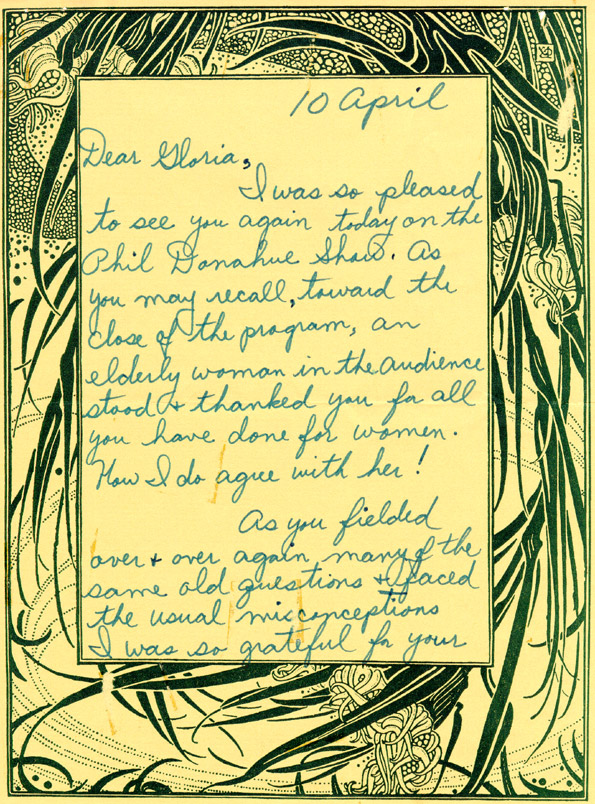 10 April
Dear Gloria,
I was so pleased
to see you again today on the
Phil Donahue Show. As
you may recall, toward the
close of the program, an
elderly woman in the audience
stood & thanked you for all
you have done for women.
How I do agree with her!
As you fielded
over & over again many of the
same old questions & faced
the usual misconceptions
I was so grateful for your